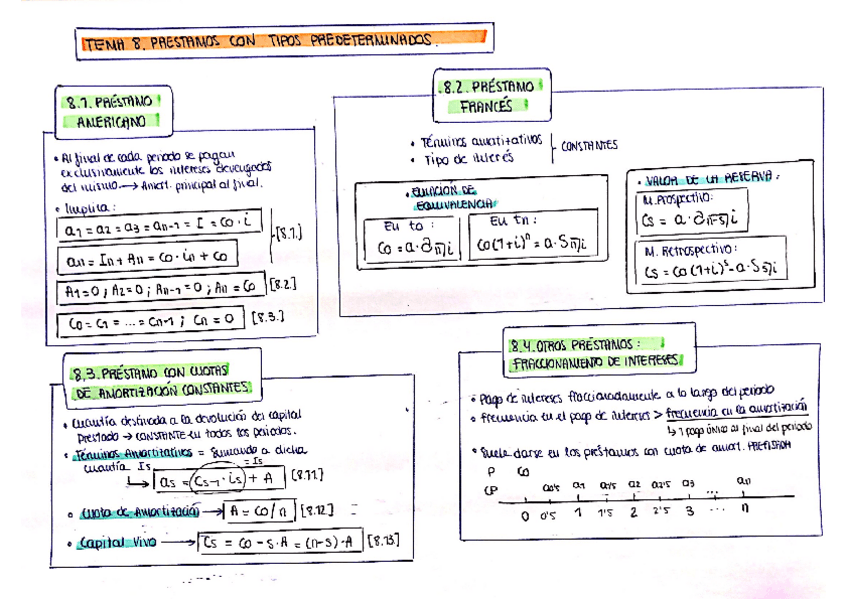 TEMA 8. PRESTAMOS CON TIPOS PREDETERMINADOS.
8.1. PRÉSTAMO
AMERICANO
• Al final de cada periodo se pagan
exclusivamente los intereses devengados
del mismo. → Amort. principal al final.
• Implica:
a1 = a2 = a3 = an-1 = I = C0 · i
[8.1.]
an = In + An = C0 · in + C0
A1 = 0 ; A2 = 0 ; An-1 = 0 ; An = C0 [8.2.]
C0 = C1 = ... = Cn-1 ; Cn = 0 [8.3.]
8.2. PRÉSTAMO
FRANCÉS
• Términos amortitativos
• Tipo de interés
CONSTANTES
• ECUACIÓN DE
EQUIVALENCIA:
Eu to:
C0 = a · an¬i
Eu tn:
C0(1+i)^n = a · Sn¬i
• VALOR DE LA RESERVA:
M. Prospectivo:
Cs = a · an-s¬i
M. Retrospectivo:
Cs = C0(1+i)^s - a · Ss¬i
8.3. PRÉSTAMO CON CUOTAS
DE AMORTIZACIÓN CONSTANTES.
• Cuantía destinada a la devolución del capital
prestado → CONSTANTE en todos los periodos.
• Términos Amortitativos = Sumando a dicha
cuantía Is
= Is
as = Cs-1 · is + A [8.11]
• Cuota de Amortización → A = C0/n [8.12] =
• Capital Vivo → Cs = C0 - s·A = (n-s)·A [8.13]
8.4. OTROS PRÉSTAMOS:
FRACCIONAMIENTO DE INTERESES
• Pago de intereses fraccionadamente a lo largo del periodo
• Frecuencia en el pago de intereses > frecuencia en la amortización
↳ 1 pago único al final del periodo
• Suele darse en los préstamos con cuota de amort. PREFIJADA
P C0
CP a0'5 a1 a1'5 a2 a2'5 a3 ... an
0 0'5 1 1'5 2 2'5 3 ... n